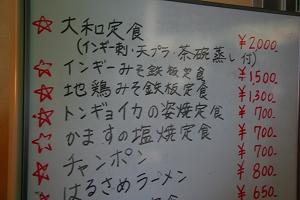 ☆ 大和定食 ¥2000-
(インギー刺・天プラ・茶碗蒸し付)
☆ インギーみそ鉄板定食 ¥1500-
☆ 地鶏みそ鉄板定食 ¥1,300-
☆ トンギョイカの姿焼定食 ¥700-
☆ かますの塩焼定食 ¥700-
☆ チャンポン ¥800-
はるさめラーメン ¥650-